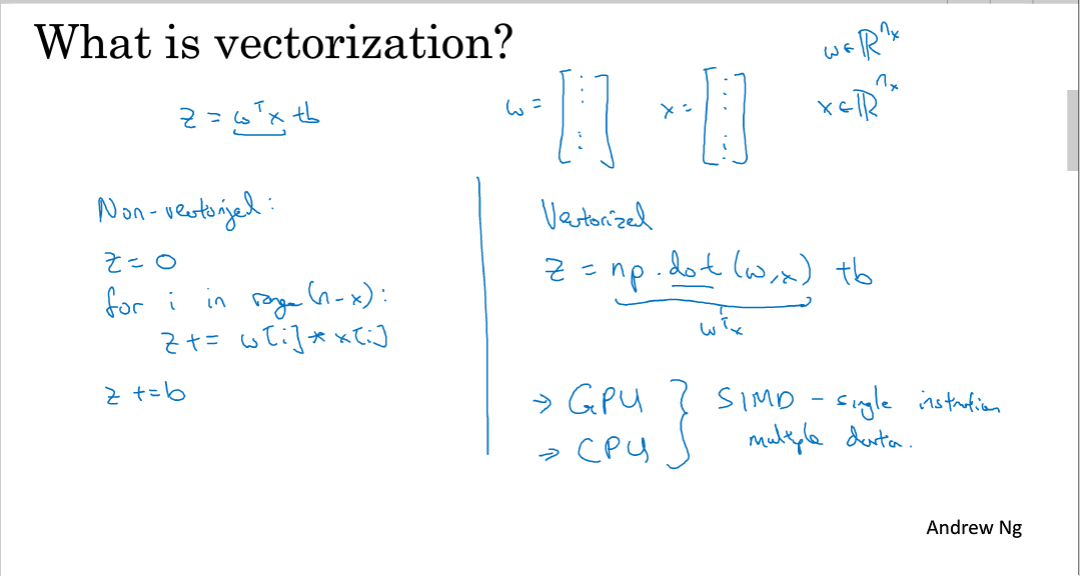 What is vectorization?
z = wᵀx + b
w = [⋮] x = [⋮]
w ∈ ℝⁿˣ
x ∈ ℝⁿˣ
Non-vectorized:
z = 0
for i in range(n-x):
z += w[i] * x[i]
z += b
Vectorized
z = np.dot(w,x) + b
wᵀx
→ GPU
→ CPU
} SIMD - single instruction
multiple data.
Andrew Ng